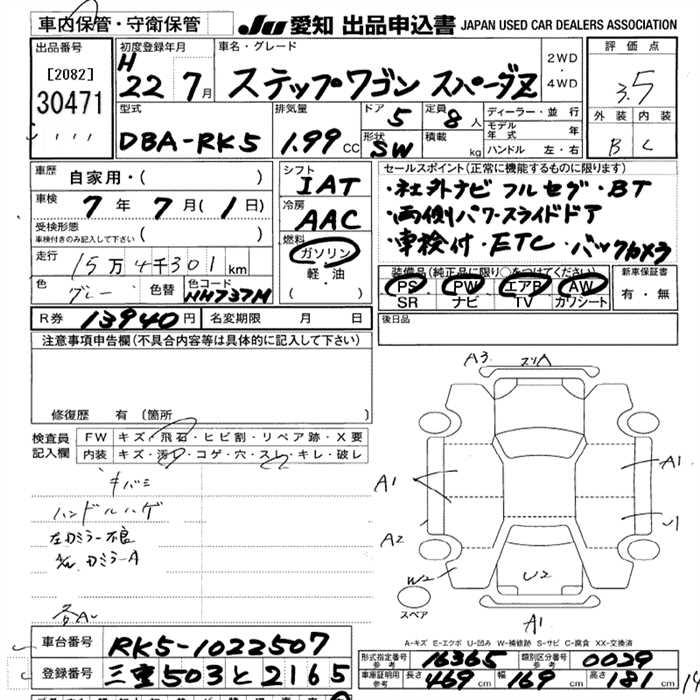 車内保管・守衛保管
JU 愛知 出品申込書 JAPAN USED CAR DEALERS ASSOCIATION
出品番号
[2082]
30471
初度登録年月
H 22 7月
車名・グレード
ステップワゴン スパーダZ
2WD
・
4WD
評価点
3.5
外装 内装
B C
型式
DBA-RK5
排気量
1.99 CC
ドア 5
定員 8人
形状 SW
積載 kg
ディーラー・並行
モデル年式 年
ハンドル 左・右
車歴 自家用・( )
車検 7年 7月( 1日)
受検形態
車検付きのみ記入して下さい ( )
走行 15万4千301km
色 グレー 色替 色コード NH737M
シフト
IAT
冷房
AAC
燃料
ガソリン
軽・油
( ・ )
セールスポイント(正常に機能するものに限ります)
・社外ナビ フルセグ・BT
・両側パワースライドドア
・車検付・ETC・バックカメラ
装備品(純正品に限り○をつけてください)
PS PW エアB AW
SR ナビ TV カワシート
新車保証書
有・無
R券 13940円 名変期限 月 日
後日品
注意事項申告欄(不具合内容等は具体的に記入して下さい)
修復歴 有 (箇所 )
検査員記入欄
FW キズ・飛石・ヒビ割・リペア跡・X要
内装 キズ・汚レ・コゲ・穴・スレ・キレ・破レ
キバミ
ハンドルハゲ
左カミラー不良
カミラーA
各A
A3 スリA
A1
A1
A2
W2
U2
A1
スペア
A-キズ E-エクボ U-凹み W-補修跡 S-サビ C-腐食 XX-交換済
車台番号 RK5-1022507
登録番号 三重503と2165
形式指定番号 参考 16365 類別区分番号 参考 0029
車庫証明用 参考 長さ 469cm 幅 169cm 高さ 181cm